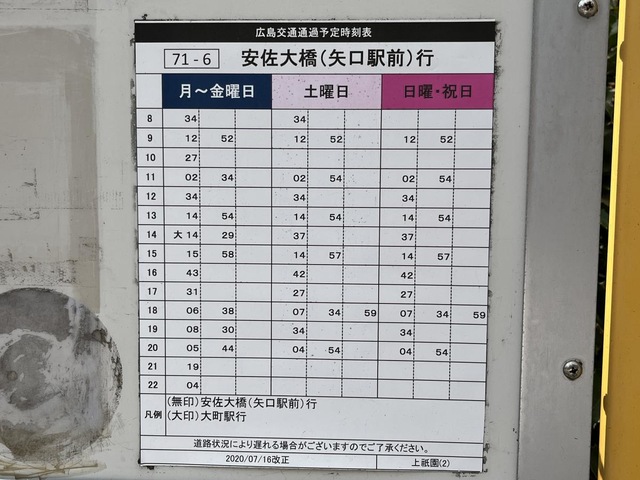 広島交通通過予定時刻表
71-6 安佐大橋(矢口駅前)行
月～金曜日 土曜日 日曜・祝日
8 34 34
9 12 52 12 52 12 52
10 27
11 02 34 02 54 02 54
12 34 34 34
13 14 54 14 54 14 54
14 大14 29 37 37
15 15 58 14 57 14 57
16 43 42 42
17 31 27 27
18 06 38 07 34 59 07 34 59
19 08 30 34 34
20 05 44 04 54 04 54
21 19
22 04
凡例 (無印)安佐大橋(矢口駅前)行
(大印)大町駅行
道路状況により遅れる場合がございますのでご了承ください。
2020/07/16改正 上祇園(2)